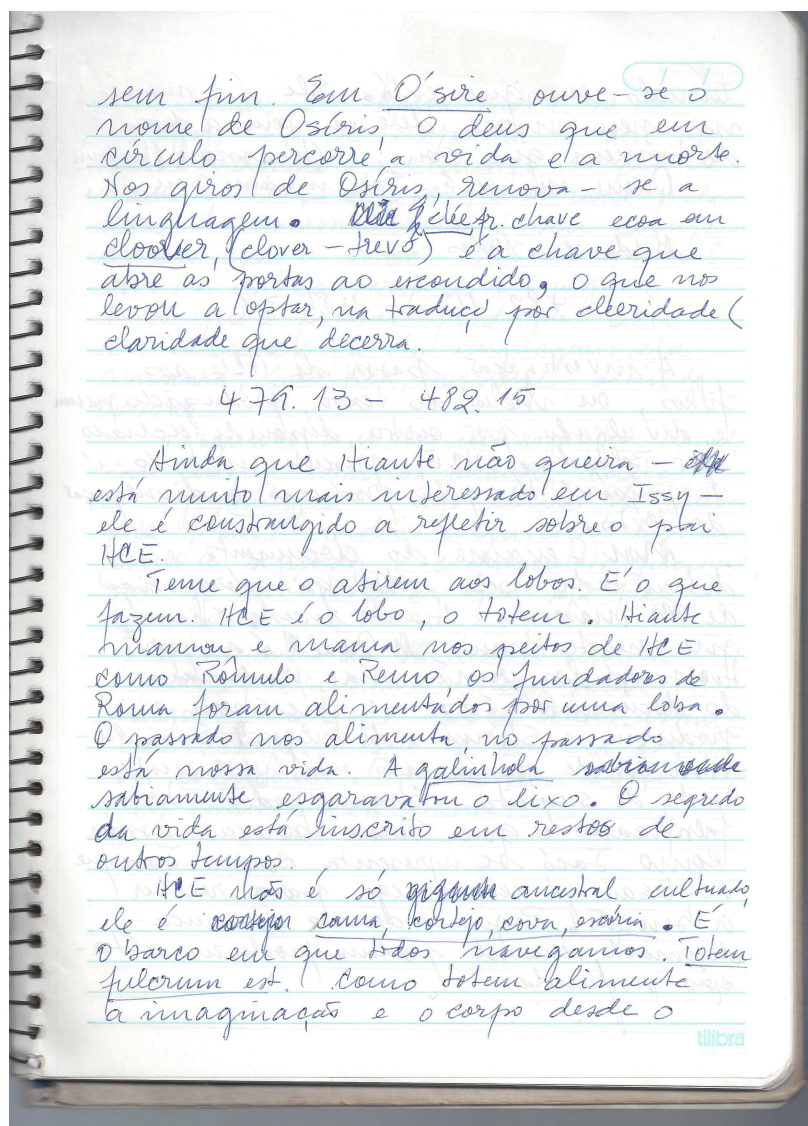 sem fim. Em O'sire ouve-se o
nome de Osíris, o deus que em
círculo percorre a vida e a morte.
Nos giros de Osíris, renova-se a
linguagem. clée fr. chave ecoa em
cloover, (clover - trevo) é a chave que
abre as portas ao escondido, o que nos
levou a optar, na traduço por cleeridade (
claridade que decerra.
479.13 - 482.15
Ainda que Hiante não queira -
está muito mais interessado em Issy -
ele é constrangido a refletir sobre o pai
HCE.
Teme que o atirem aos lobos. É o que
fazem. HCE é o lobo, o totem. Hiante
mamou e mama nos peitos de HCE
como Rômulo e Remo, os fundadores de
Roma foram alimentados por uma loba.
O passado nos alimenta, no passado
está nossa vida. A galinhola
sabiamente esgaravatou o lixo. O segredo
da vida está inscrito em restos de
outros tempos.
HCE não é só ancestral cultuado,
ele é cama, cortejo, cova, escória. É
o barco em que todos navegamos. Totem
fulcrum est. Como totem alimente
a imaginação e o corpo desde o
tilibra